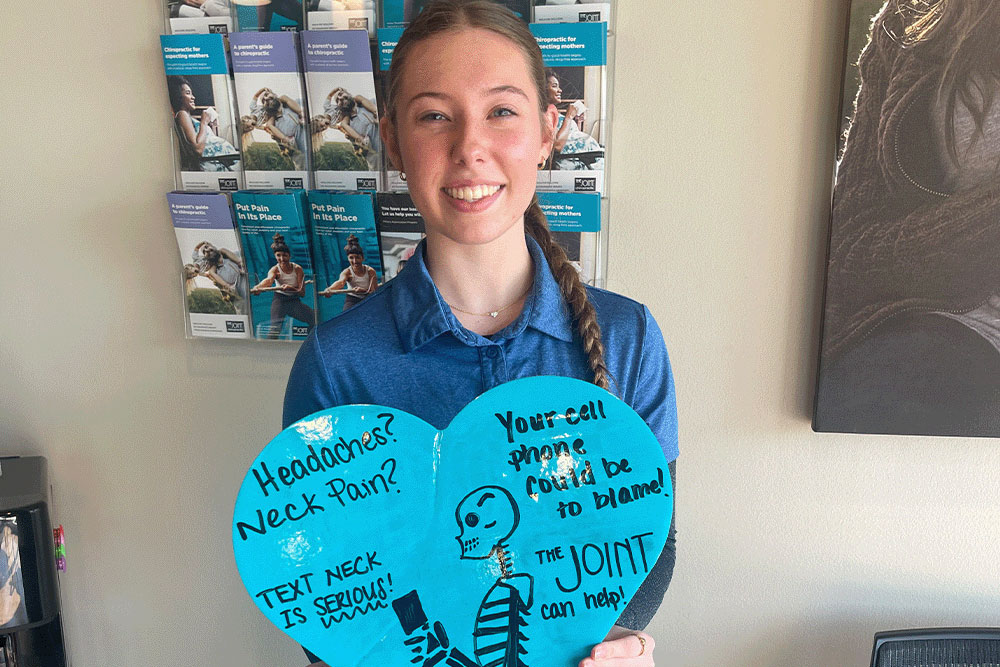 Chiropractic for
expecting mothers
A parent's guide
to chiropractic
A parent's guide
to chiropractic
Chiropractic for
expecting mothers
THE
JOINT
THE
JOINT
THE
JOINT
A parent's guide
to chiropractic
THE
JOINT
Put Pain
In Its Place
Put Pain
In Its Place
You have our
Let us help you
Headaches?
Neck Pain?
TEXT NECK
IS SERIOUS!
Your cell
phone
could be
to blame!
THE JOINT
can help!